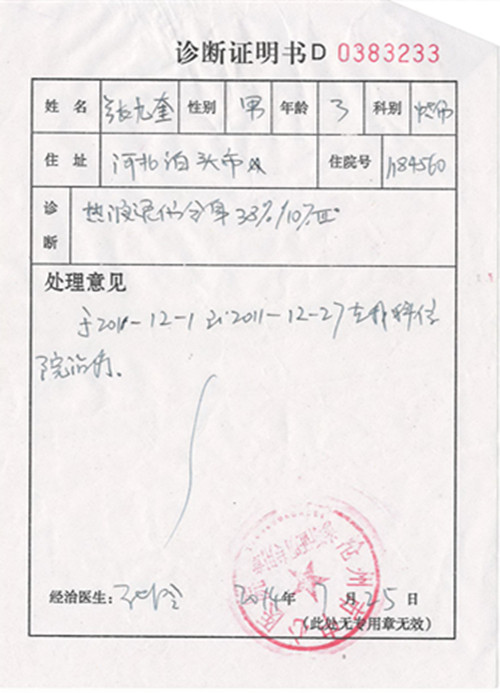 诊断证明书D 0383233
姓名 张九奎 性别 男 年龄 3 科别 烧伤
住址 河北泊头市 住院号 184560
诊断 热液烫伤全身38%/10%Ⅲ°
处理意见
于2011-12-1至2011-12-27在我科住
院治疗。
沧州市中心医院
经治医生: 2014年7月25日
(此处无专用章无效)